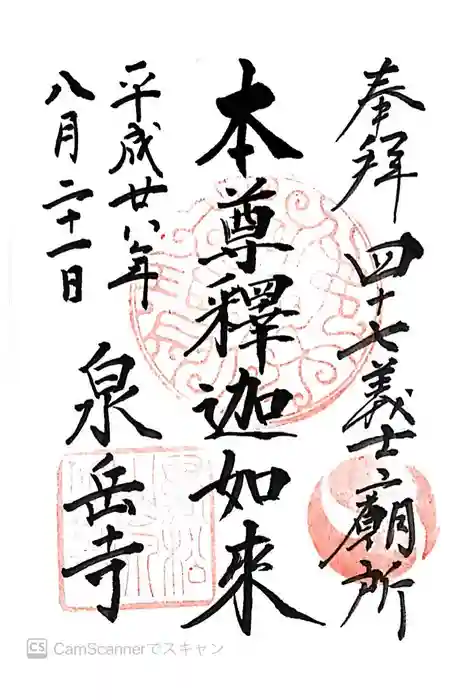 奉拜 四十七義士之廟所
本尊釋迦如來
平成廿八年
八月二十一日
泉岳寺
CS CamScannerでスキャン